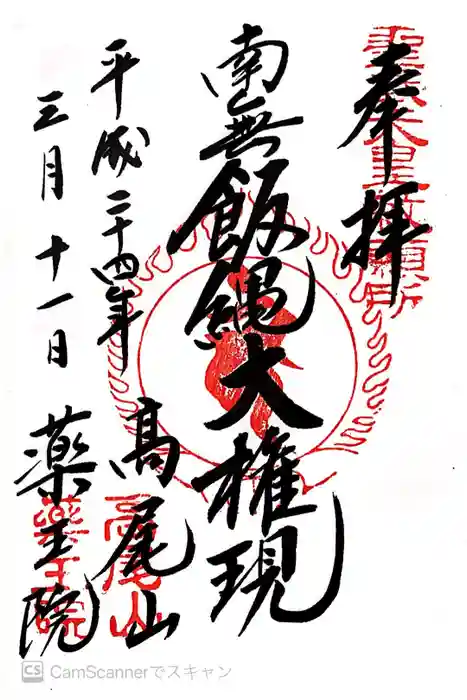 奉拝
聖武天皇勅願所
南無飯縄大権現
平成二十四年
三月十一日
高尾山
薬王院
高尾山
薬王院
CS CamScannerでスキャン